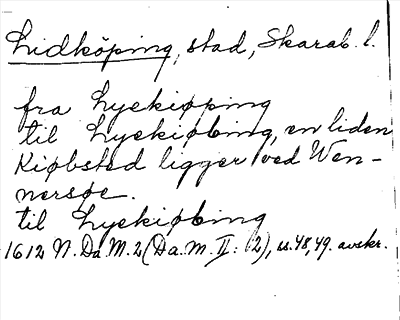 Lidköping, stad, Skarab. l.
fra Lyekiøpping
til Lyekiøbing, en liden
Kiøbsted ligger ved Wen-
nersøe.
til Lyekiøbing
1612 N. Da. M. 2 (Da. M. II: 2), ss. 48, 49. avskr.